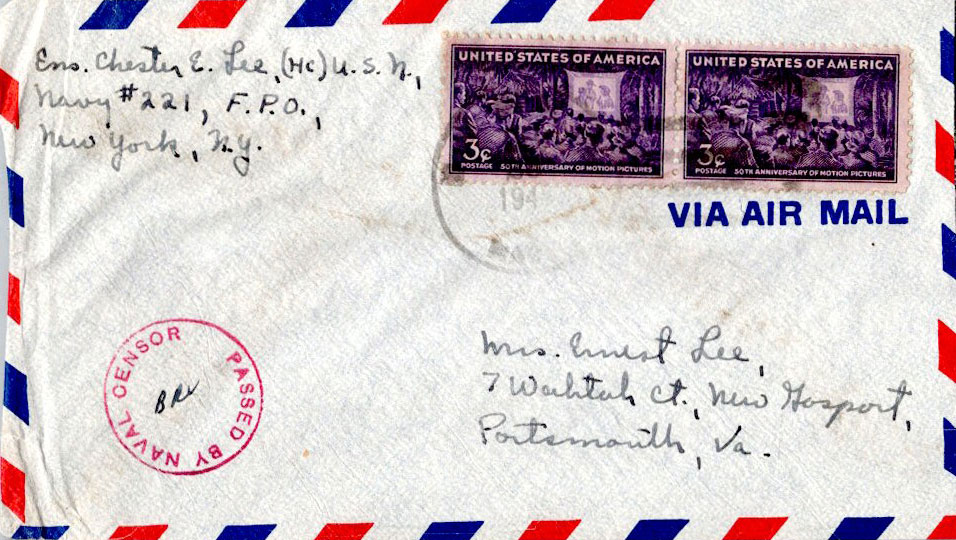 Ens. Chester E. Lee, (HC) U.S.N.,
Navy #221, F.P.O.,
New York, N.Y.
UNITED STATES OF AMERICA
3¢
POSTAGE 50TH ANNIVERSARY OF MOTION PICTURES
UNITED STATES OF AMERICA
3¢
POSTAGE 50TH ANNIVERSARY OF MOTION PICTURES
194
VIA AIR MAIL
PASSED BY NAVAL CENSOR
Mrs. Ernest Lee,
7 Ct., New Gosport,
Portsmouth, Va.